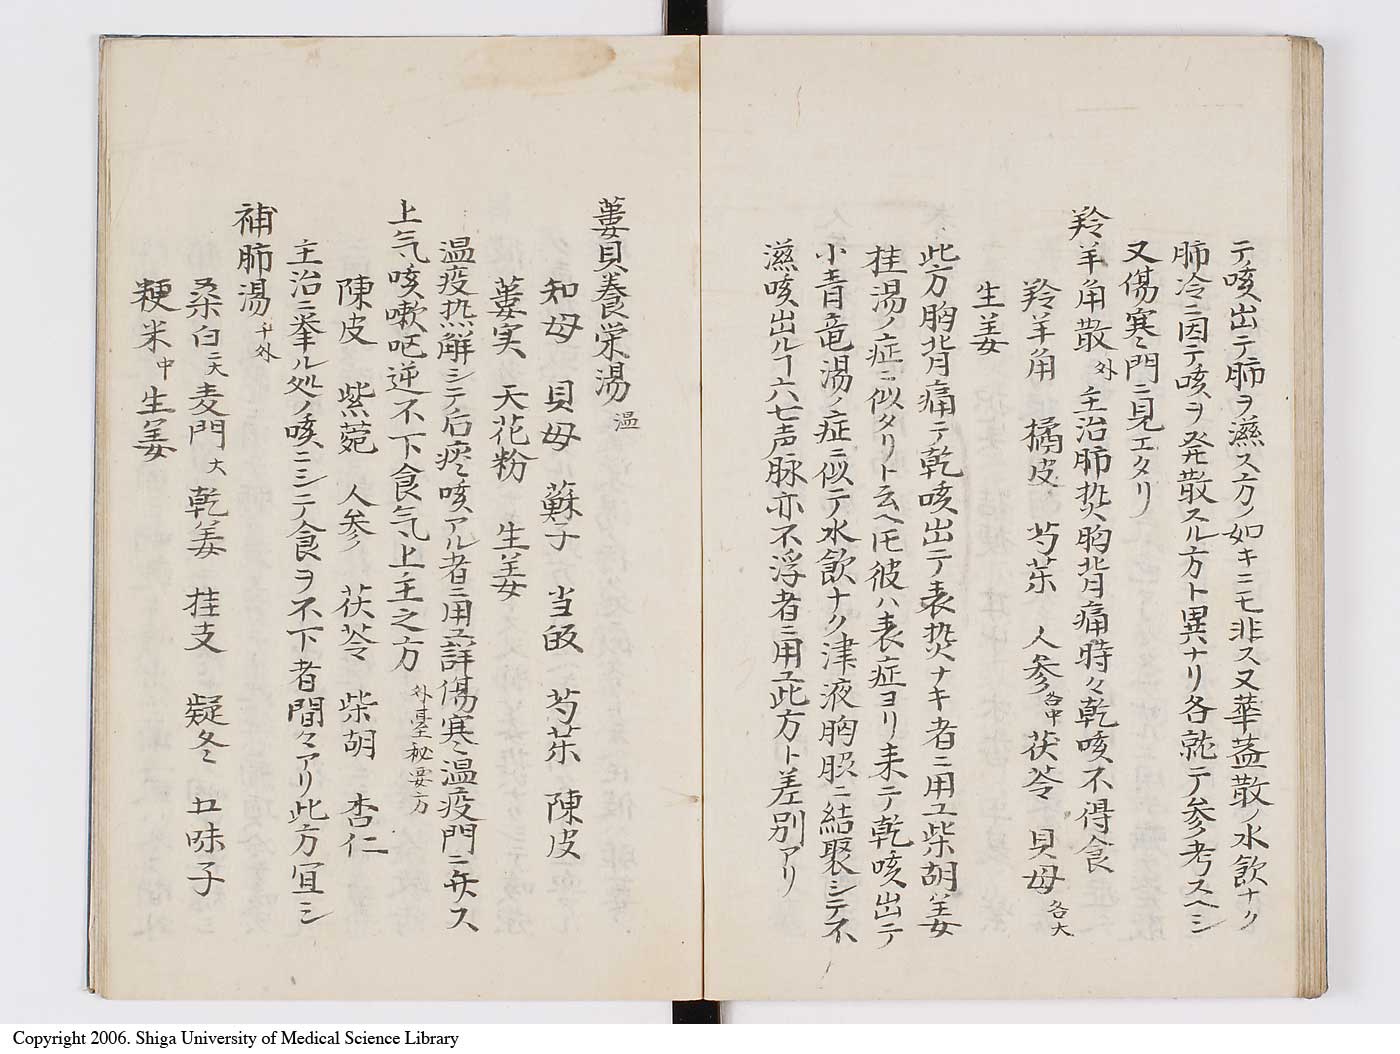 テ咳出テ肺ヲ濕ス方ノ如キニモ非ス又華盖散ノ水飲ナク
肺冷ニ因テ咳ヲ発散スル方ト異ナリ各就テ参考スヘシ
又傷寒門ニ見エタリ
羚羊角散 外 主治肺𤍠胸背痛時々乾咳不得食
羚羊角 橘皮 芍薬 人参各中 茯苓 貝母各大
生姜
此方胸背痛テ乾咳出テ表𤍠ナキ者ニ用ユ柴胡姜
桂湯ノ症ニ似タリト云ヘ𪜈彼ハ表症ヨリ来テ乾咳出テ
小青竜湯ノ症ニ似テ水飲ナク津液胸膈ニ結聚シテ不
濕咳出ルヿ六七声脉亦不浮者ニ用ユ此方ト差別アリ
蔞貝養栄湯 温
知母 貝母 蘇子 当皈 芍薬 陳皮
蔞実 天花粉 生姜
温疫𤍠解シテ后痰咳アル者ニ用ユ詳傷寒温疫門ニ弁ス
上气咳嗽呕逆不下食气上主之方 外臺秘要方
陳皮 紫菀 人参 茯苓 柴胡 杏仁
主治ニ挙ル処ノ咳ニシテ食ヲ不下者間々アリ此方宜シ
補肺湯 千外
桑白大 麦門大 乾姜 桂支 疑冬 五味子
粳米中 生姜
Copyright 2006. Shiga University of Medical Science Library